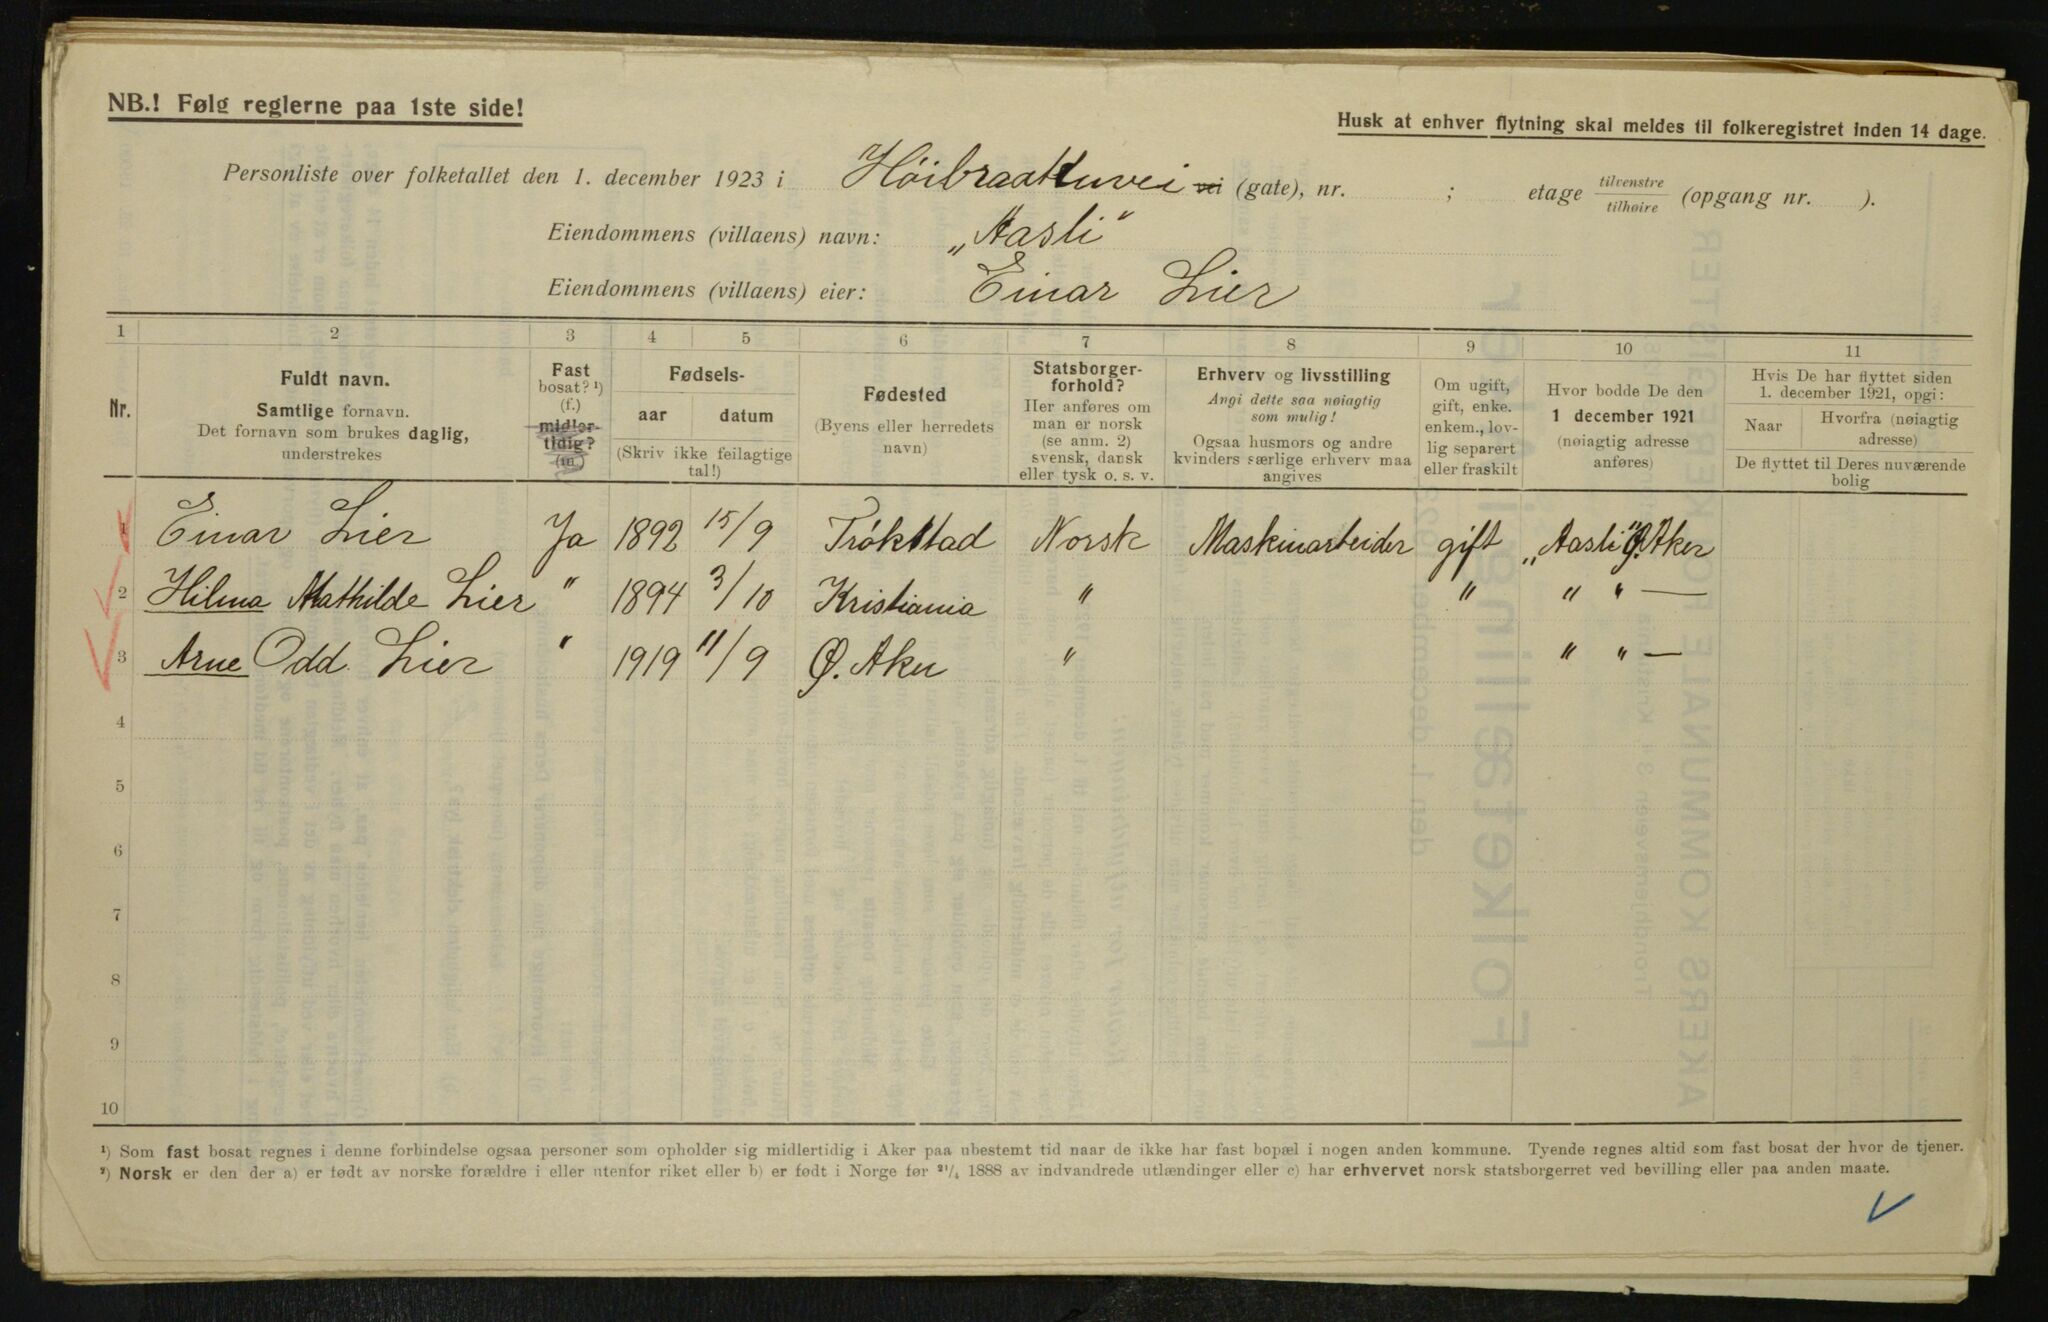 NB.! Følg reglerne paa 1ste side!
Husk at enhver flytning skal meldes til folkeregistret inden 14 dage.
Personliste over folketallet den 1. december 1923 i Høibraattenvei vei (gate), nr. ; etage tilvenstre / tilhøire (opgang nr. ).
Eiendommens (villaens) navn: „Aasli"
Eiendommens (villaens) eier: Einar Lier
1 2 3 4 5 6 7 8 9 10 11
Nr.
Fuldt navn.
Samtlige fornavn.
Det fornavn som brukes daglig,
understrekes
Fast
bosat? ¹)
(f.)
midler-
tidig?
(m.)
Fødsels-
aar datum
(Skriv ikke feilagtige
tal!)
Fødested
(Byens eller herredets
navn)
Statsborger-
forhold?
Her anføres om
man er norsk
(se anm. 2)
svensk, dansk
eller tysk o. s. v.
Erhverv og livsstilling
Angi dette saa nøiagtig
som mulig!
Ogsaa husmors og andre
kvinders særlige erhverv maa
angives
Om ugift,
gift, enke.
enkem., lov-
lig separert
eller fraskilt
Hvor bodde De den
1 december 1921
(nøiagtig adresse
anføres)
Hvis De har flyttet siden
1. december 1921, opgi:
Naar Hvorfra (nøiagtig
adresse)
De flyttet til Deres nuværende
bolig
1 Einar Lier Ja 1892 15/9 Trøkstad Norsk Maskinarbeider gift „Aasli" Ø. Aker
2 Hilma Mathilde Lier " 1894 3/10 Kristiania " " " " —
3 Arne Odd Lier " 1919 11/9 Ø. Aker " " " —
4
5
6
7
8
9
10
¹) Som fast bosat regnes i denne forbindelse ogsaa personer som opholder sig midlertidig i Aker paa ubestemt tid naar de ikke har fast bopæl i nogen anden kommune. Tyende regnes altid som fast bosat der hvor de tjener.
²) Norsk er den der a) er født av norske forældre i eller utenfor riket eller b) er født i Norge før ²¹/₄ 1888 av indvandrede utlændinger eller c) har erhvervet norsk statsborgerret ved bevilling eller paa anden maate.